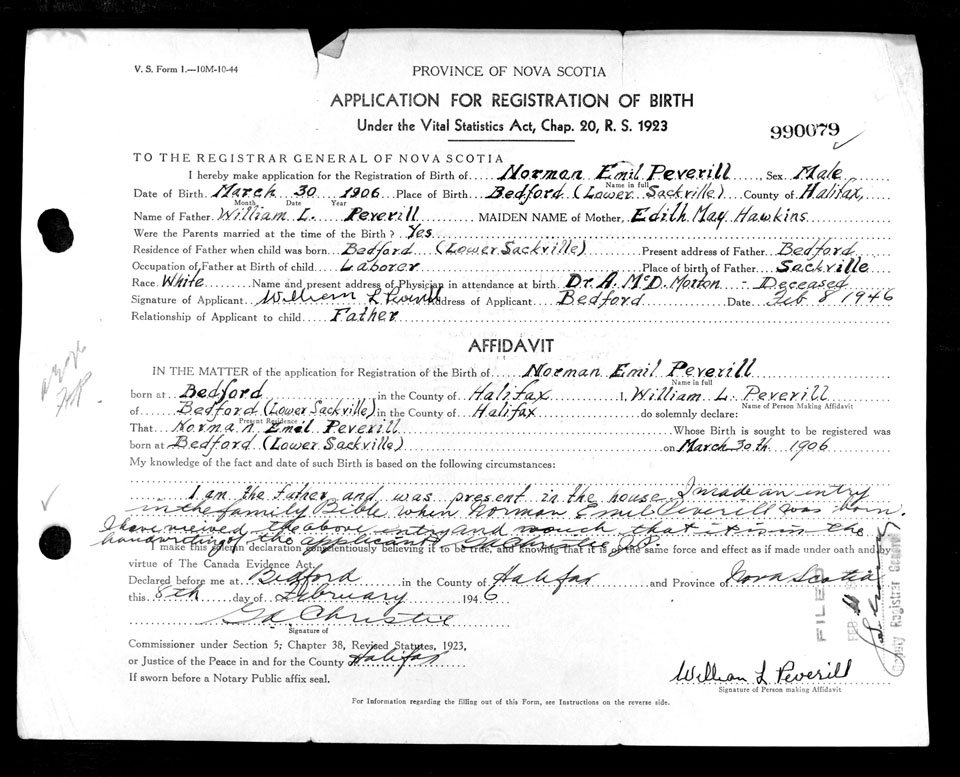 V. S. Form 1.—10M-10-44
PROVINCE OF NOVA SCOTIA
APPLICATION FOR REGISTRATION OF BIRTH
Under the Vital Statistics Act, Chap. 20, R. S. 1923
990079
TO THE REGISTRAR GENERAL OF NOVA SCOTIA
I hereby make application for the Registration of Birth of Norman Emil Peverill, Sex Male
Name in full
Date of Birth March 30 1906 Place of Birth Bedford (Lower Sackville) County of Halifax,
Month Date Year
Name of Father William L. Peverill MAIDEN NAME of Mother, Edith May Hawkins
Were the Parents married at the time of the Birth? Yes
Residence of Father when child was born Bedford (Lower Sackville) Present address of Father Bedford
Occupation of Father at Birth of child Laborer Place of birth of Father Sackville
Race White Name and present address of Physician in attendance at birth Dr. A. McD. Morton - Deceased
Signature of Applicant William L Peverill Address of Applicant Bedford Date Feb 8 1946
Relationship of Applicant to child Father
AFFIDAVIT
IN THE MATTER of the application for Registration of the Birth of Norman Emil Peverill
Name in full
born at Bedford in the County of Halifax I, William L. Peverill
Name of Person Making Affidavit
of Bedford (Lower Sackville) in the County of Halifax do solemnly declare:
Present Residence
That Norman Emil Peverill Whose Birth is sought to be registered was
born at Bedford (Lower Sackville) on March 30th 1906
My knowledge of the fact and date of such Birth is based on the following circumstances:
I am the father and was present in the house. I made an entry
in the family Bible when Norman Emil Peverill was born.
I have viewed the above entry and that it is in the
handwriting of the applicant Ga Christie J.P.
I make this solemn declaration conscientiously believing it to be true, and knowing that it is of the same force and effect as if made under oath and by
virtue of The Canada Evidence Act.
Declared before me at Bedford in the County of Halifax and Province of Nova Scotia
this 8th day of February 1946
Ga Christie
Signature of
Commissioner under Section 5; Chapter 38, Revised Statutes, 1923,
or Justice of the Peace in and for the County Halifax
If sworn before a Notary Public affix seal.
FILED
FEB
Registrar General
William L Peverill
Signature of Person making Affidavit
For Information regarding the filling out of this Form, see Instructions on the reverse side.